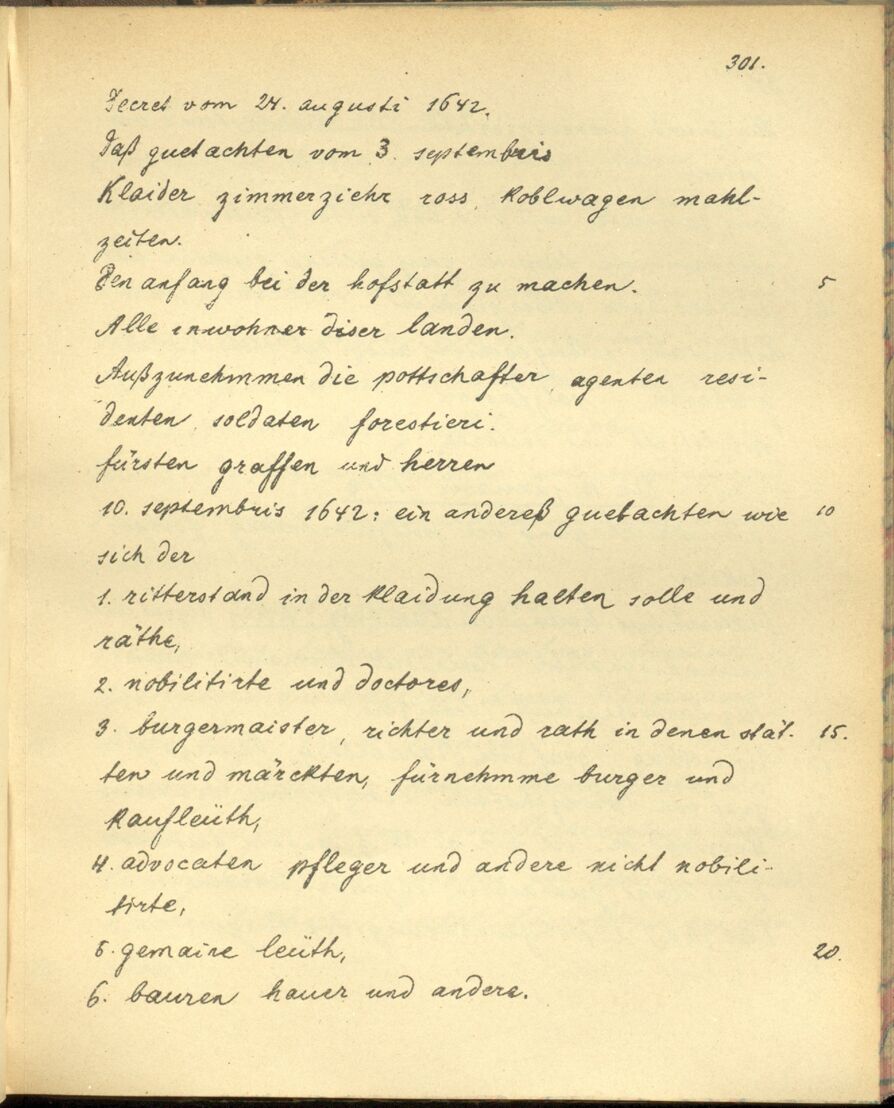 301.
Decret vom 24. augusti 1642.
Daß guetachten vom 3. septembris
Klaider zimmerziehr ross koblwagen mahl-
zeiten.
Den anfang bei der hofstatt zu machen. 5
Alle inwohner diser landen.
Außzunehmmen die pottschafter agenten resi-
denten soldaten forestieri.
fürsten graffen und herren
10. septembris 1642: ein andereß guetachten wie 10
sich der
1. ritterstand in der klaidung halten solle und
räthe,
2. nobilitirte und doctores,
3. burgermaister, richter und rath in denen stät- 15.
ten und märckten, fürnehmme burger und
kaufleüth,
4. advocaten pfleger und andere nicht nobili-
tirte,
5. gemaine leüth, 20.
6. bauren hauer und andere.